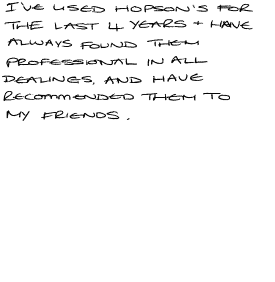 I'VE USED HOPSON'S FOR
THE LAST 4 YEARS + HAVE
ALWAYS FOUND THEM
PROFESSIONAL IN ALL
DEALINGS, AND HAVE
RECOMMENDED THEM TO
MY FRIENDS.